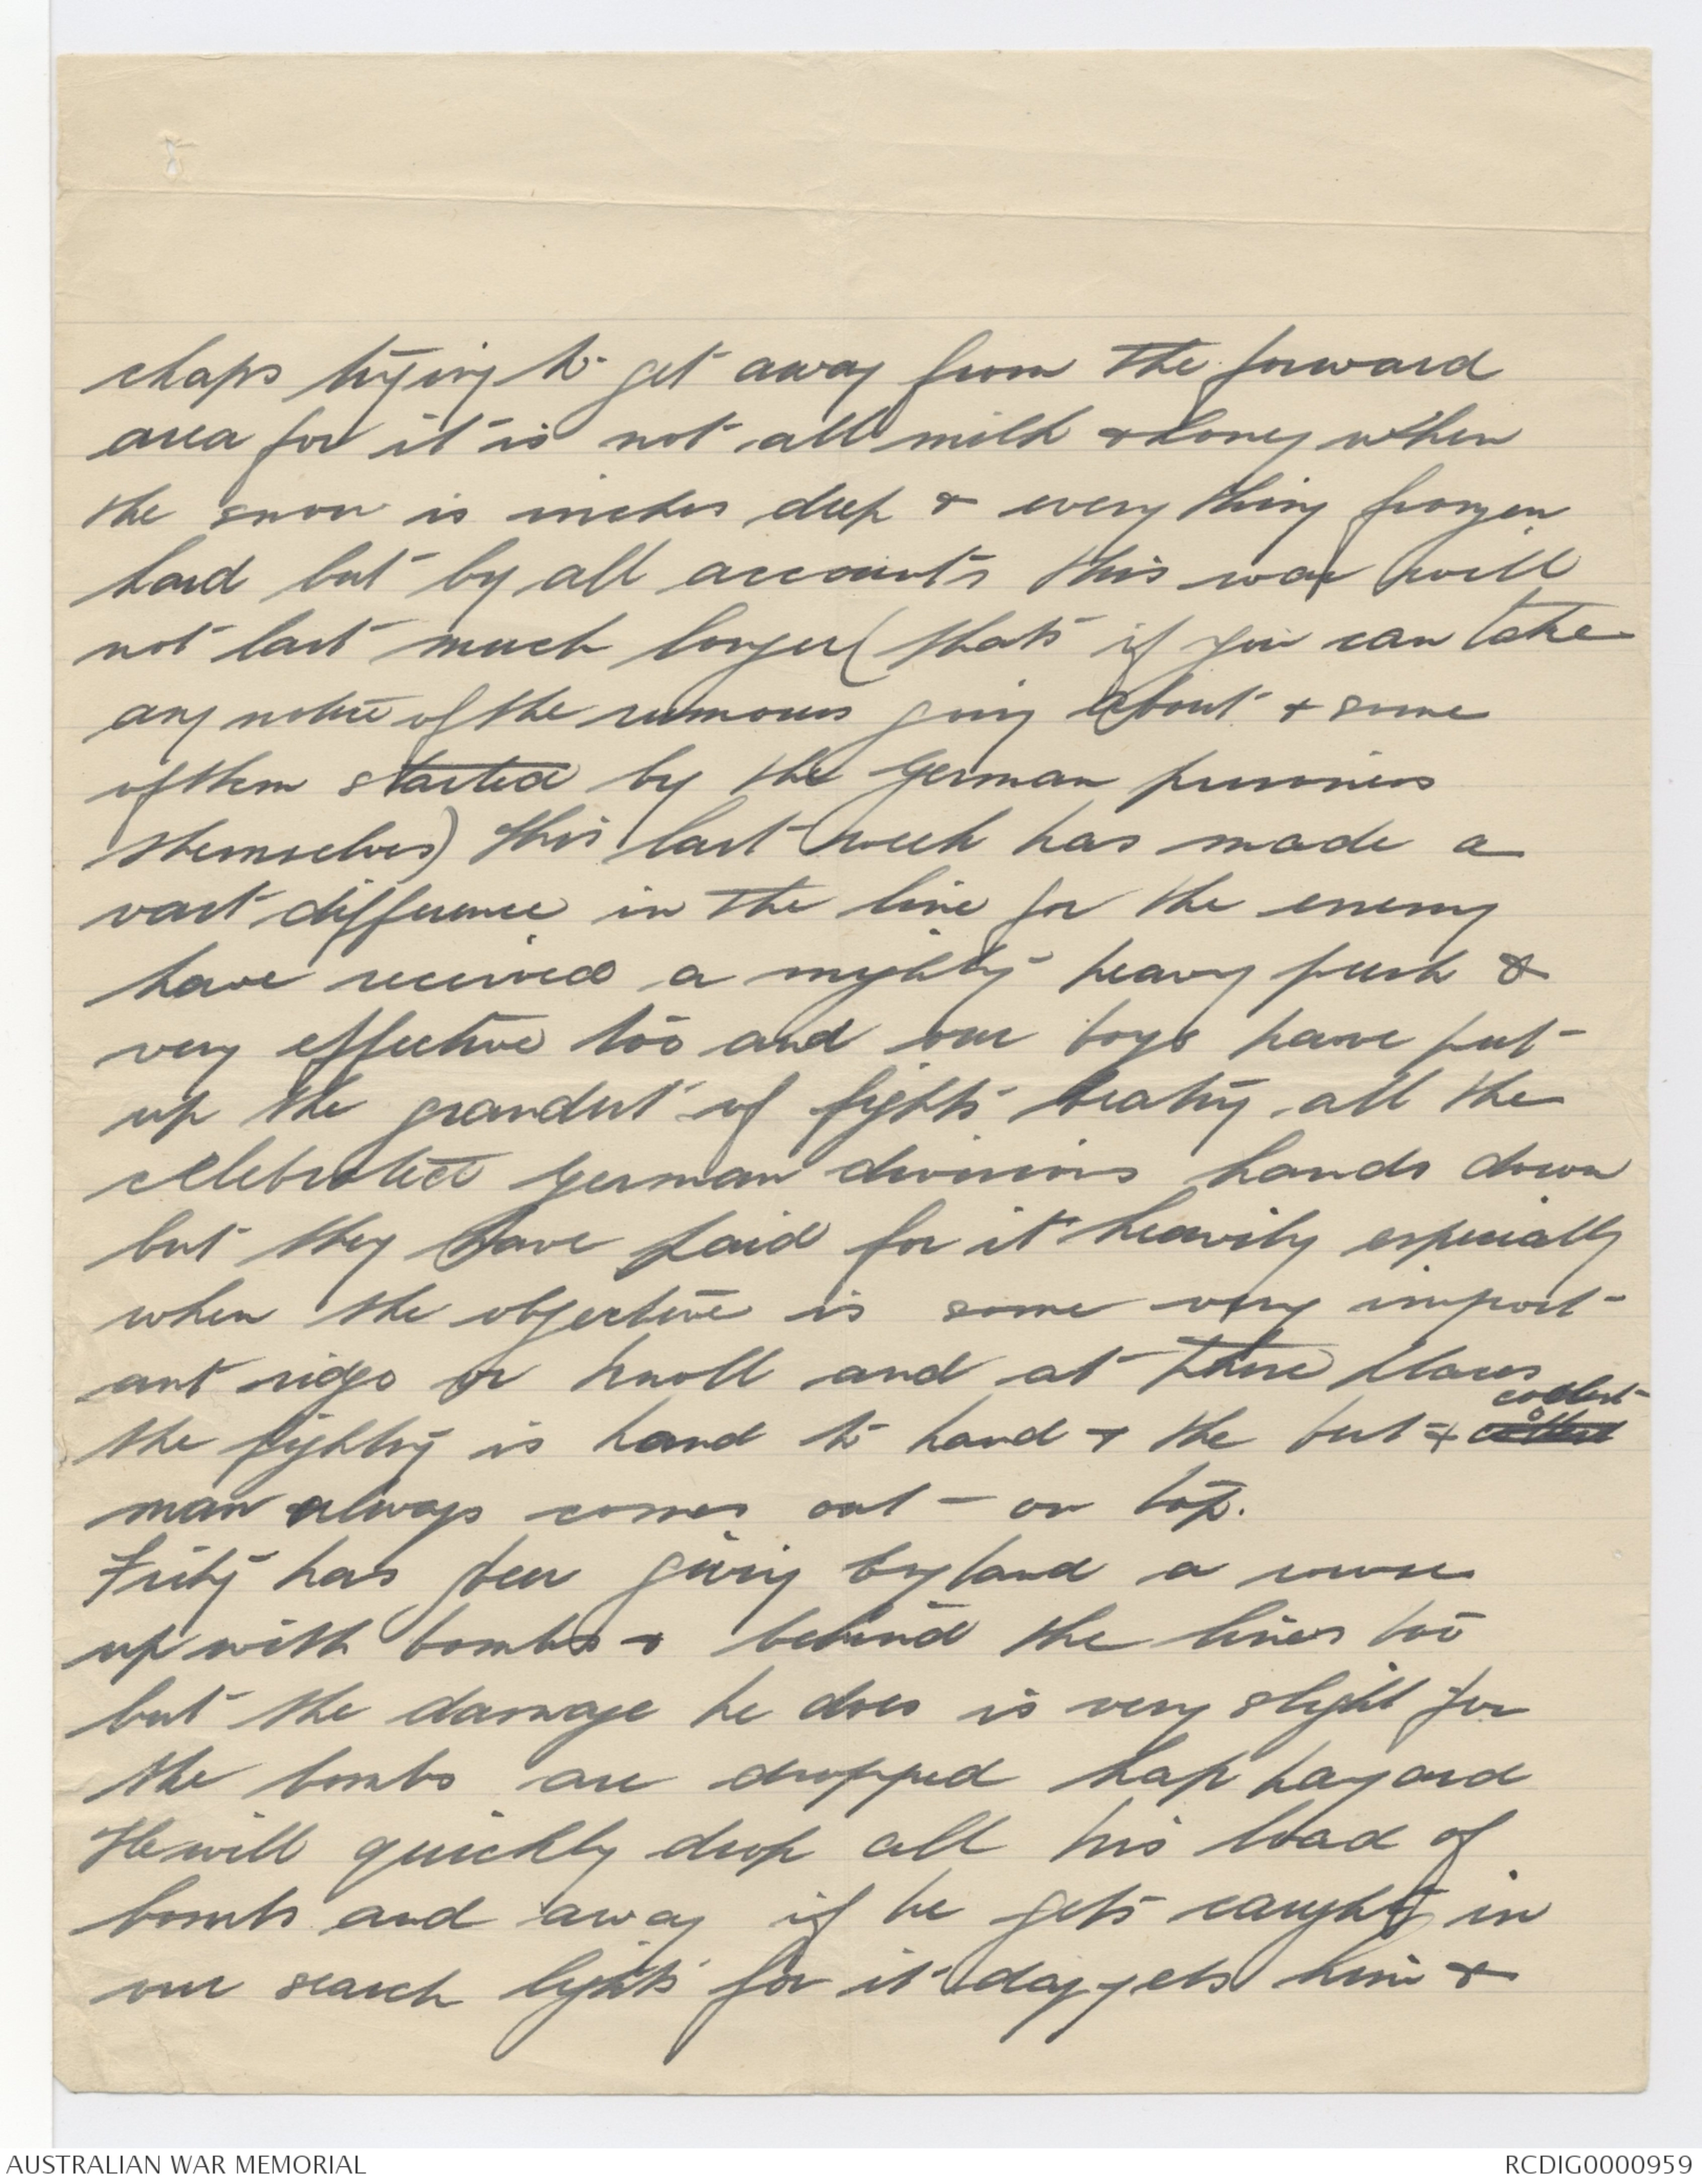 chaps trying to get away from the forward
area for it is not all milk & honey when
the snow is inches deep & every thing frozen
hard but by all accounts this war will
not last much longer (thats if you can take
any notice of the rumours going about & some
of them started by the German prisoners
themselves) this last week has made a
vast difference in the line for the enemy
have received a mighty heavy push &
very effective too and our boys have put
up the grandest of fights beating all the
celebrated German divisions hands down
but they have paid for it heavily especially
when the objective is some very import-
ant ridge or knoll and at these places
coolest
the fighting is hand to hand & the best &
man always comes out - on top.
Fritz has been giving England a
up with bombs & behind the lines too
but the damage he does is very slight for
the bombs are dropped hap hazard
He will quickly drop all his load of
bombs and away if he gets caught in
our search lights for it dazzels him &
AUSTRALIAN WAR MEMORIAL
RCDIG0000959